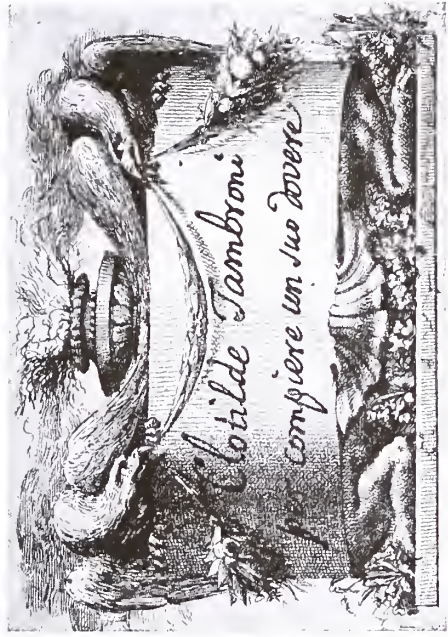 Clotilde Tambroni
per compiere un suo dovere